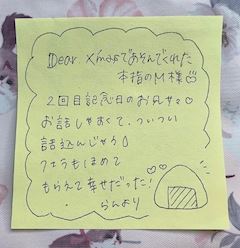 Dear X'masであそんでくれた
本指のM様
2回目記念日のお兄サマ
お話しやすくて、ついつい
話込んじゃう
フェラもほめて
もらえて幸せだった!
らんより